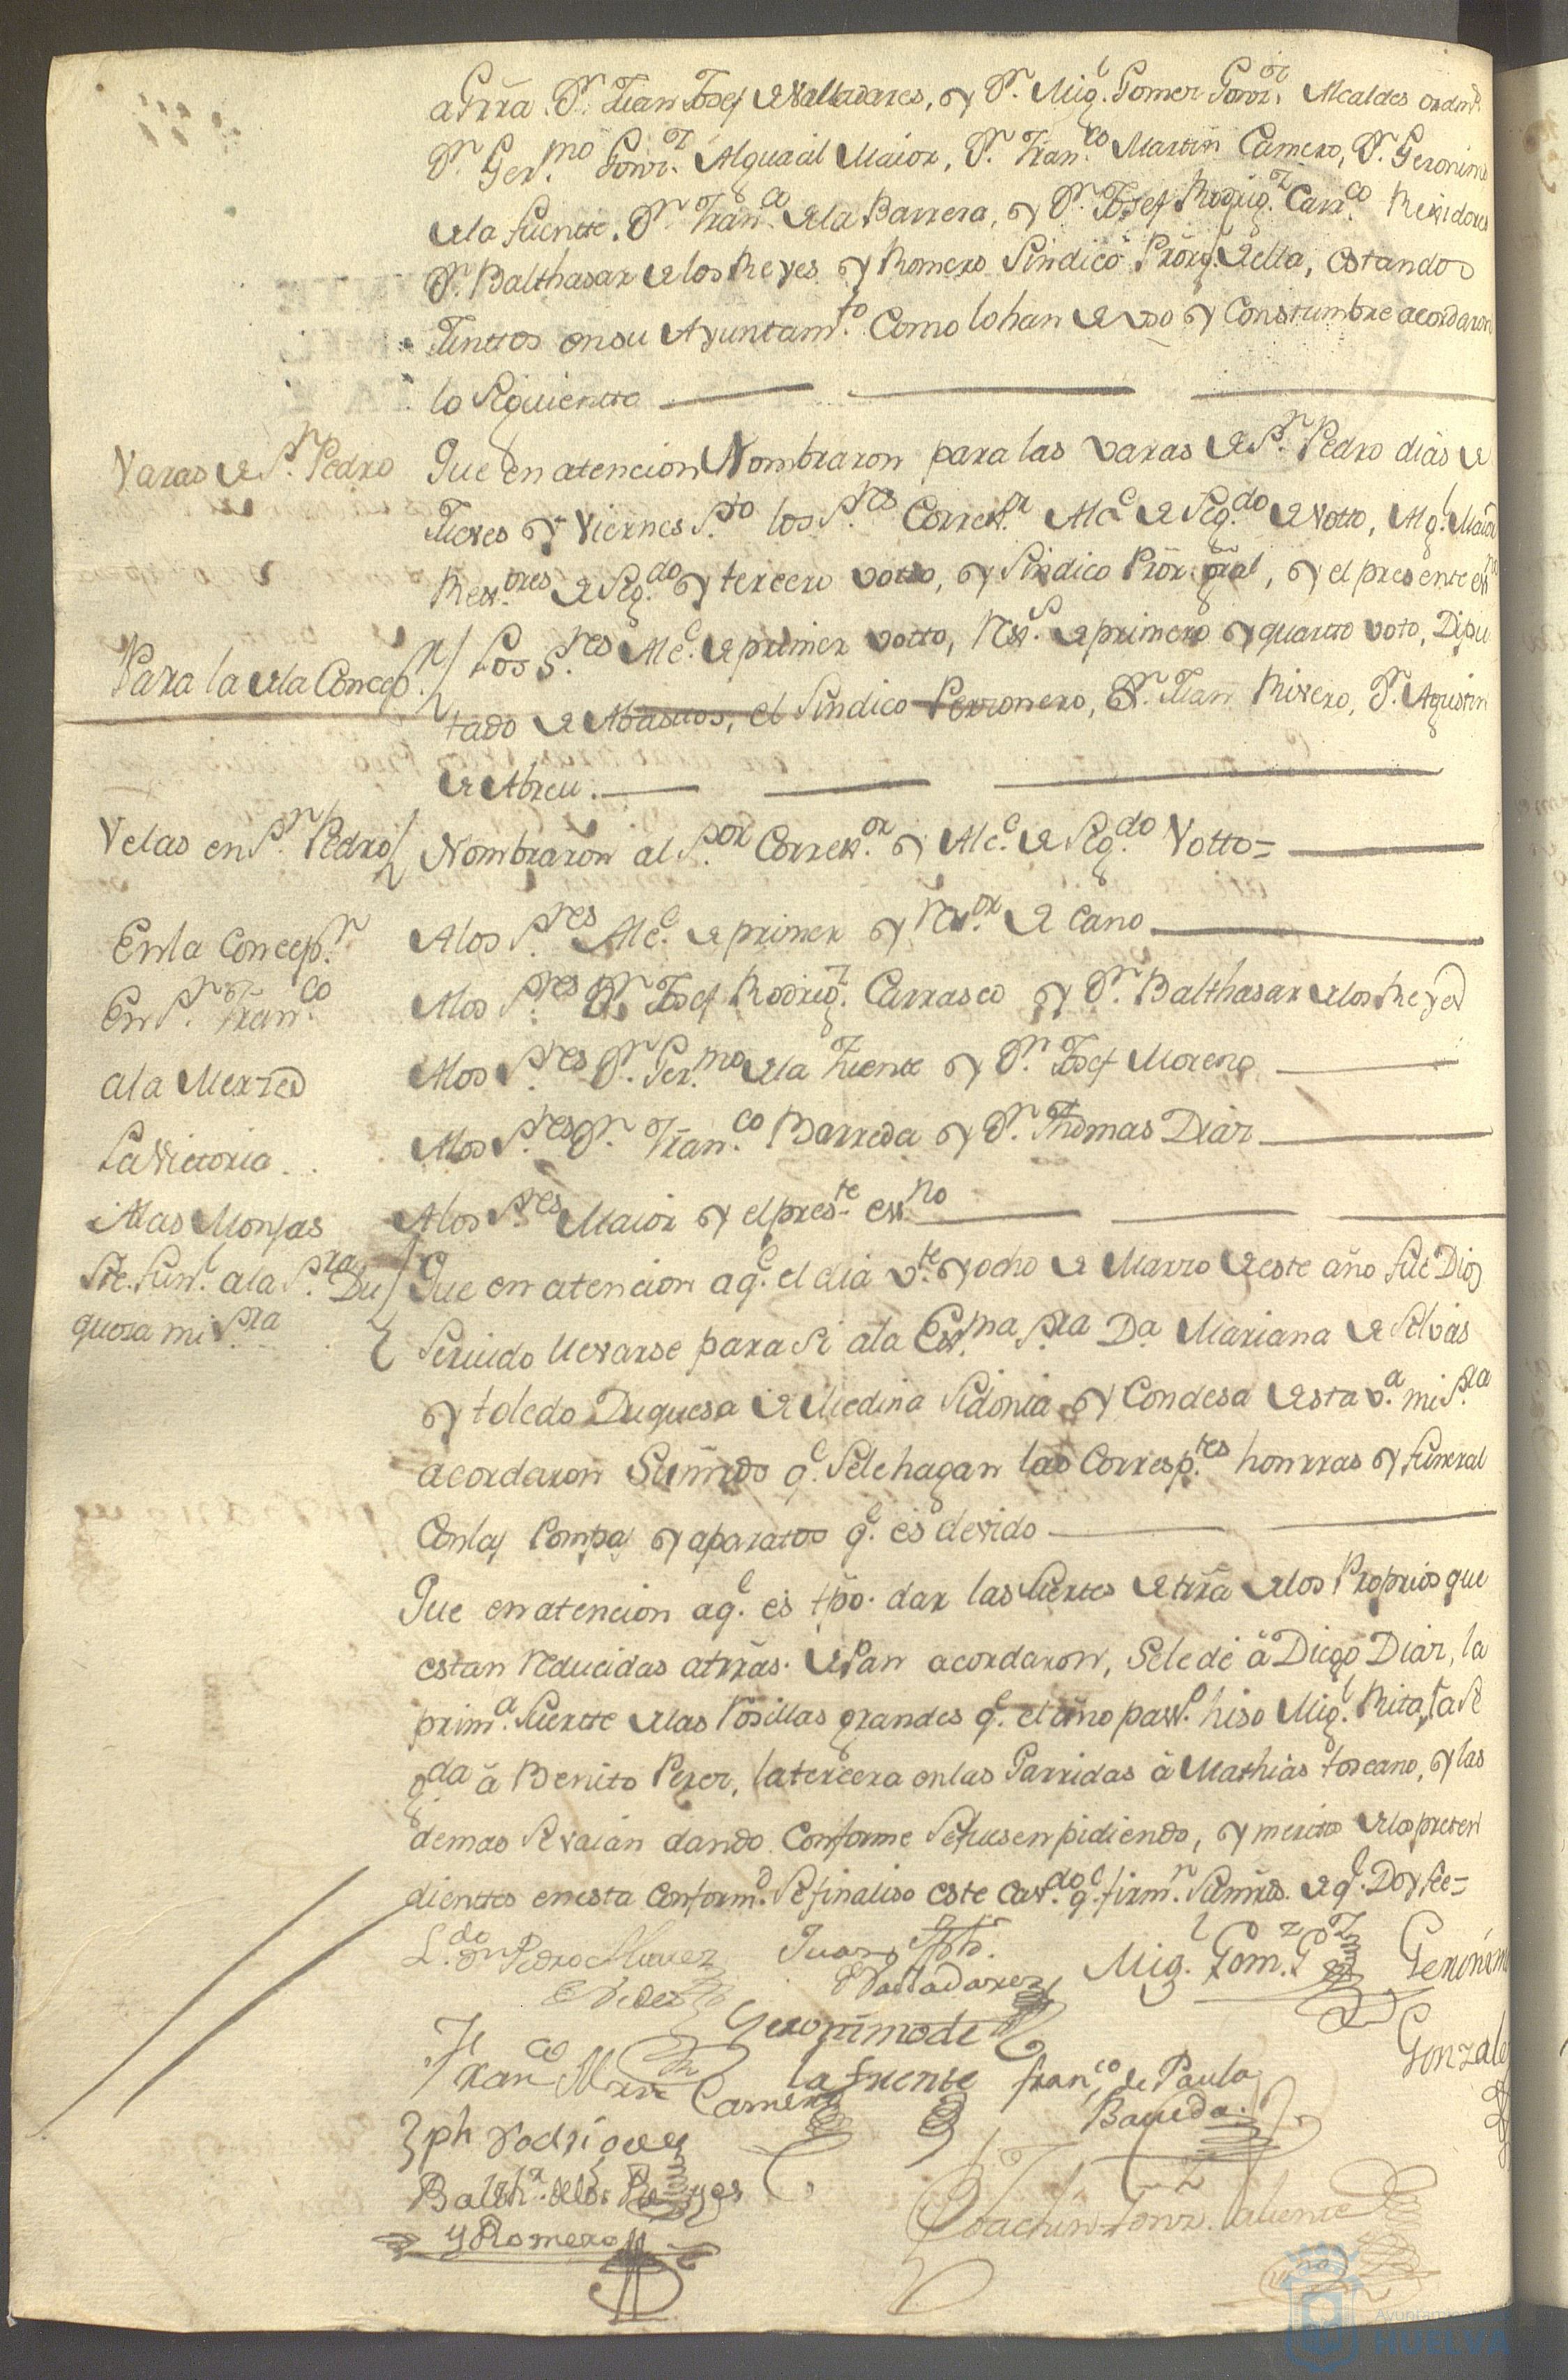 aGrra. Dn. Juan Josef de Valladares, y Dn. Migl. Gomez Gonz. Alcaldes ordins.
Dn. Germo. Gonz. Alguacil Maior, Dn. Franco. Martin Camero, Dn. Geronimo
de la fuente, Dn. Franco. de la Barrera, y Dn. Josef Rodrig. Carrco. Rexidores
Dn. Balthasar de los Reyes y Romero Sindico Pror. gl. de ella, estando
Junttos en su Ayuntamto. Como lo han de uso y Constumbre acordaron
lo Siguientte
Varas de Sn. Pedro
Que en atencion Nombraron para las varas de Sn. Pedro dias de
Jueves y Viernes Sto. los Sres. Correxor. Alce. de Segdo. de Votto, Algl. Maior
Rexores. de Segdo. y tercero votto, y Sindico Pror. gral, y el presente essno
Para la de la Concepn.
Los Sres. Alce. de primer votto, Rexs. de primero y quarto voto, Dipu
tado de Abastos, el Sindico Perzonero, Dn. Juan Rivero, Dn. Agustin
de Abreu.
Velas en Sn. Pedro
Nombraron al Sor. Correxor. y Alce. de Segdo. Votto=
En la Concepn.
Alos Sres. Alce. de primer y Rexor. de Cano
En Sn. Franco
Alos Sres. Dn. Josef Rodrig. Carrasco y Dn. Balthasar de los Reyes
a la Merzed
Alos Sres. Dn. Germo. de la Fuente y Dn. Josef Moreno
La Victoria
Alos Sres. Dn. Franco. Barreda y Dn. Thomas Diaz
A las Monjas
Alos Sres. Maior y el preste. essno
Sre. funl. a la Sra. Du
quesa mi Sra
Que en atencion a qe. el dia vte. y ocho de Marzo de este año fue Dios
Servido llevarse para Si a la Exma. Sra. Da. Mariana de Silvas
y toledo Duquesa de Medina Sidonia y Condesa de esta va. mi Sra
acordaron Sumrds qe. Se le hagan las Correspteš. honrras y funeral
Con la Pompa y aparatos qe. es devido
Que en atencion a qe. es tpo. dar las Suertes de trra de los Proprios que
estan reducidas a trras. de Pan acordaron, Se le dé á Diego Diaz, la
prima. Suertte de las Posillas grandes qe. el año passdo. hiso Migl. Rita, la Se
gda á Benito Perez, la tercera en las Parridas á Mathias toscano, y las
demas Se vaian dando Conforme Se fuesen pidiendo, y merito de los preten
dienttes en esta Conformd. Se finaliso este Cavdo. qe. firmn. Sumrds. de qe. Doy fee=
Ldo. Dn. Pedro Alvarez
Juan Jph.
de Valladarez
Migl. Gomz. Gz
Geronimo
Gonzale
Geronimo de
la fuente
Franco Mrn
Camero
franco. de Paula
Barreda.
Jph rodriguez
Baltha. de los Reyes
y Romero
Joachin Gonz. Valiente
Ayuntam
HUELVA